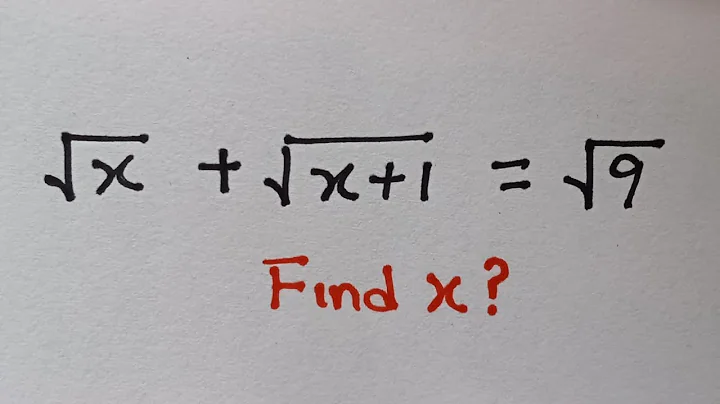 √x + √x+1 = √9
Find x?